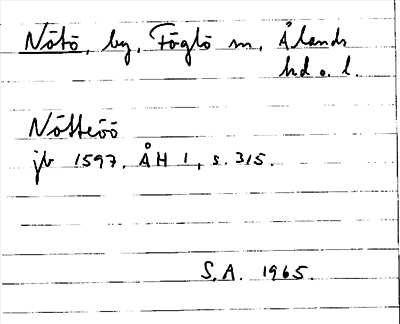 Nötö, by, Föglö sn, Ålands
hd o. l.
Nötteöö
jb 1597. ÅH 1, s. 315.
S.A. 1965.